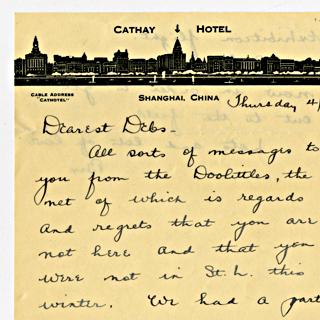 CATHAY HOTEL
CABLE ADDRESS
"CATHOTEL"
SHANGHAI CHINA
Thursday 4/
Dearest Debs-
All sorts of messages to
you from the Doolittles, the
net of which is regards
and regrets that you are
not here and that you
were not in St. L. this
winter. We had a part